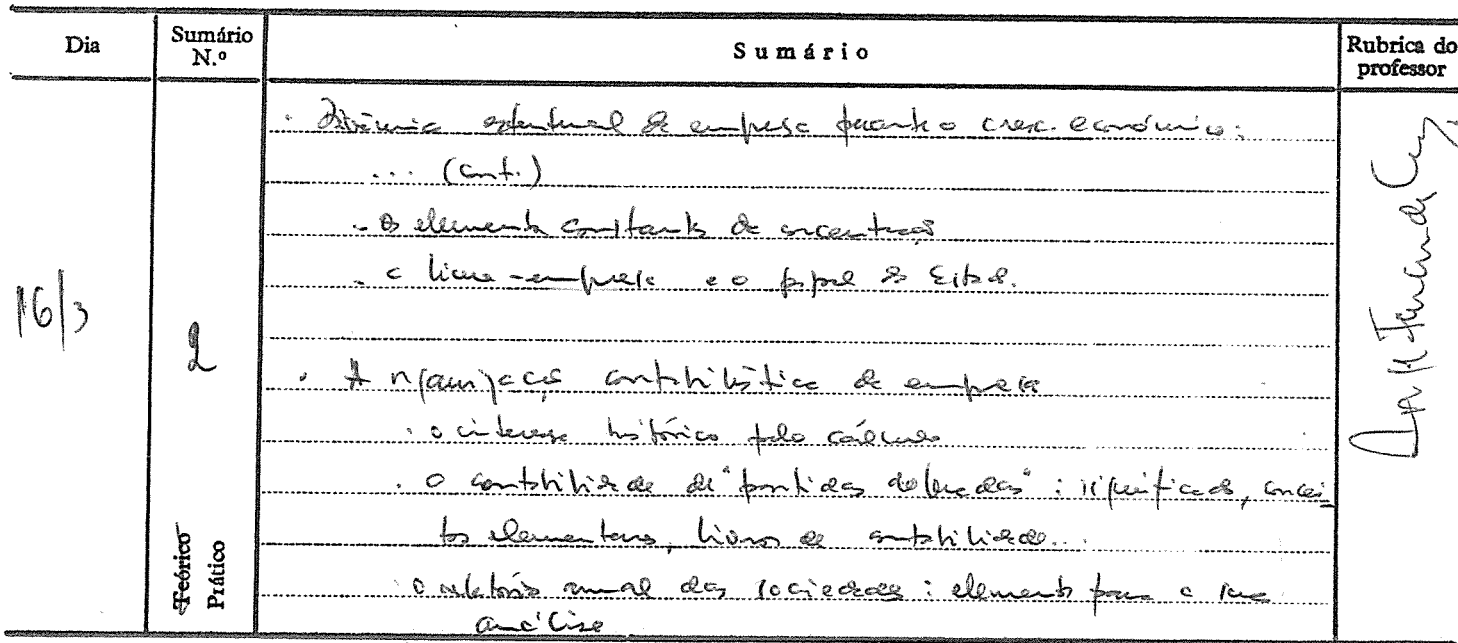 Dia
Sumário N.º
Sumário
Rubrica do professor
16/3
2
Teórico
Prático
· Dinâmica estrutural da empresa durante o cresc. económico:
... (cont.)
- Os elementos constantes da concentração
- a livre-empresa e o papel do Estado.
· A organização contabilística da empresa
· o interesse histórico pelo cálculo
· a contabilidade de "partidas dobradas": significado, concei
tos elementares, livros de contabilidade...
· o relatório anual das sociedades: elementos para a sua
análise